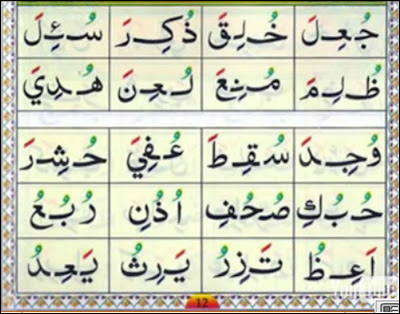 جُعِلَ خُلِقَ ذُكِرَ سُئِلَ
ظُلِمَ مُنِعَ لُعِنَ هُدِيَ
وُجِدَ سُقِطَ عُفِيَ حُشِرَ
حُبُكِ صُحُفِ اُذُنِ رُبُعُ
اَعِظُ تَزِرُ يَرِثُ يَعِدُ
12